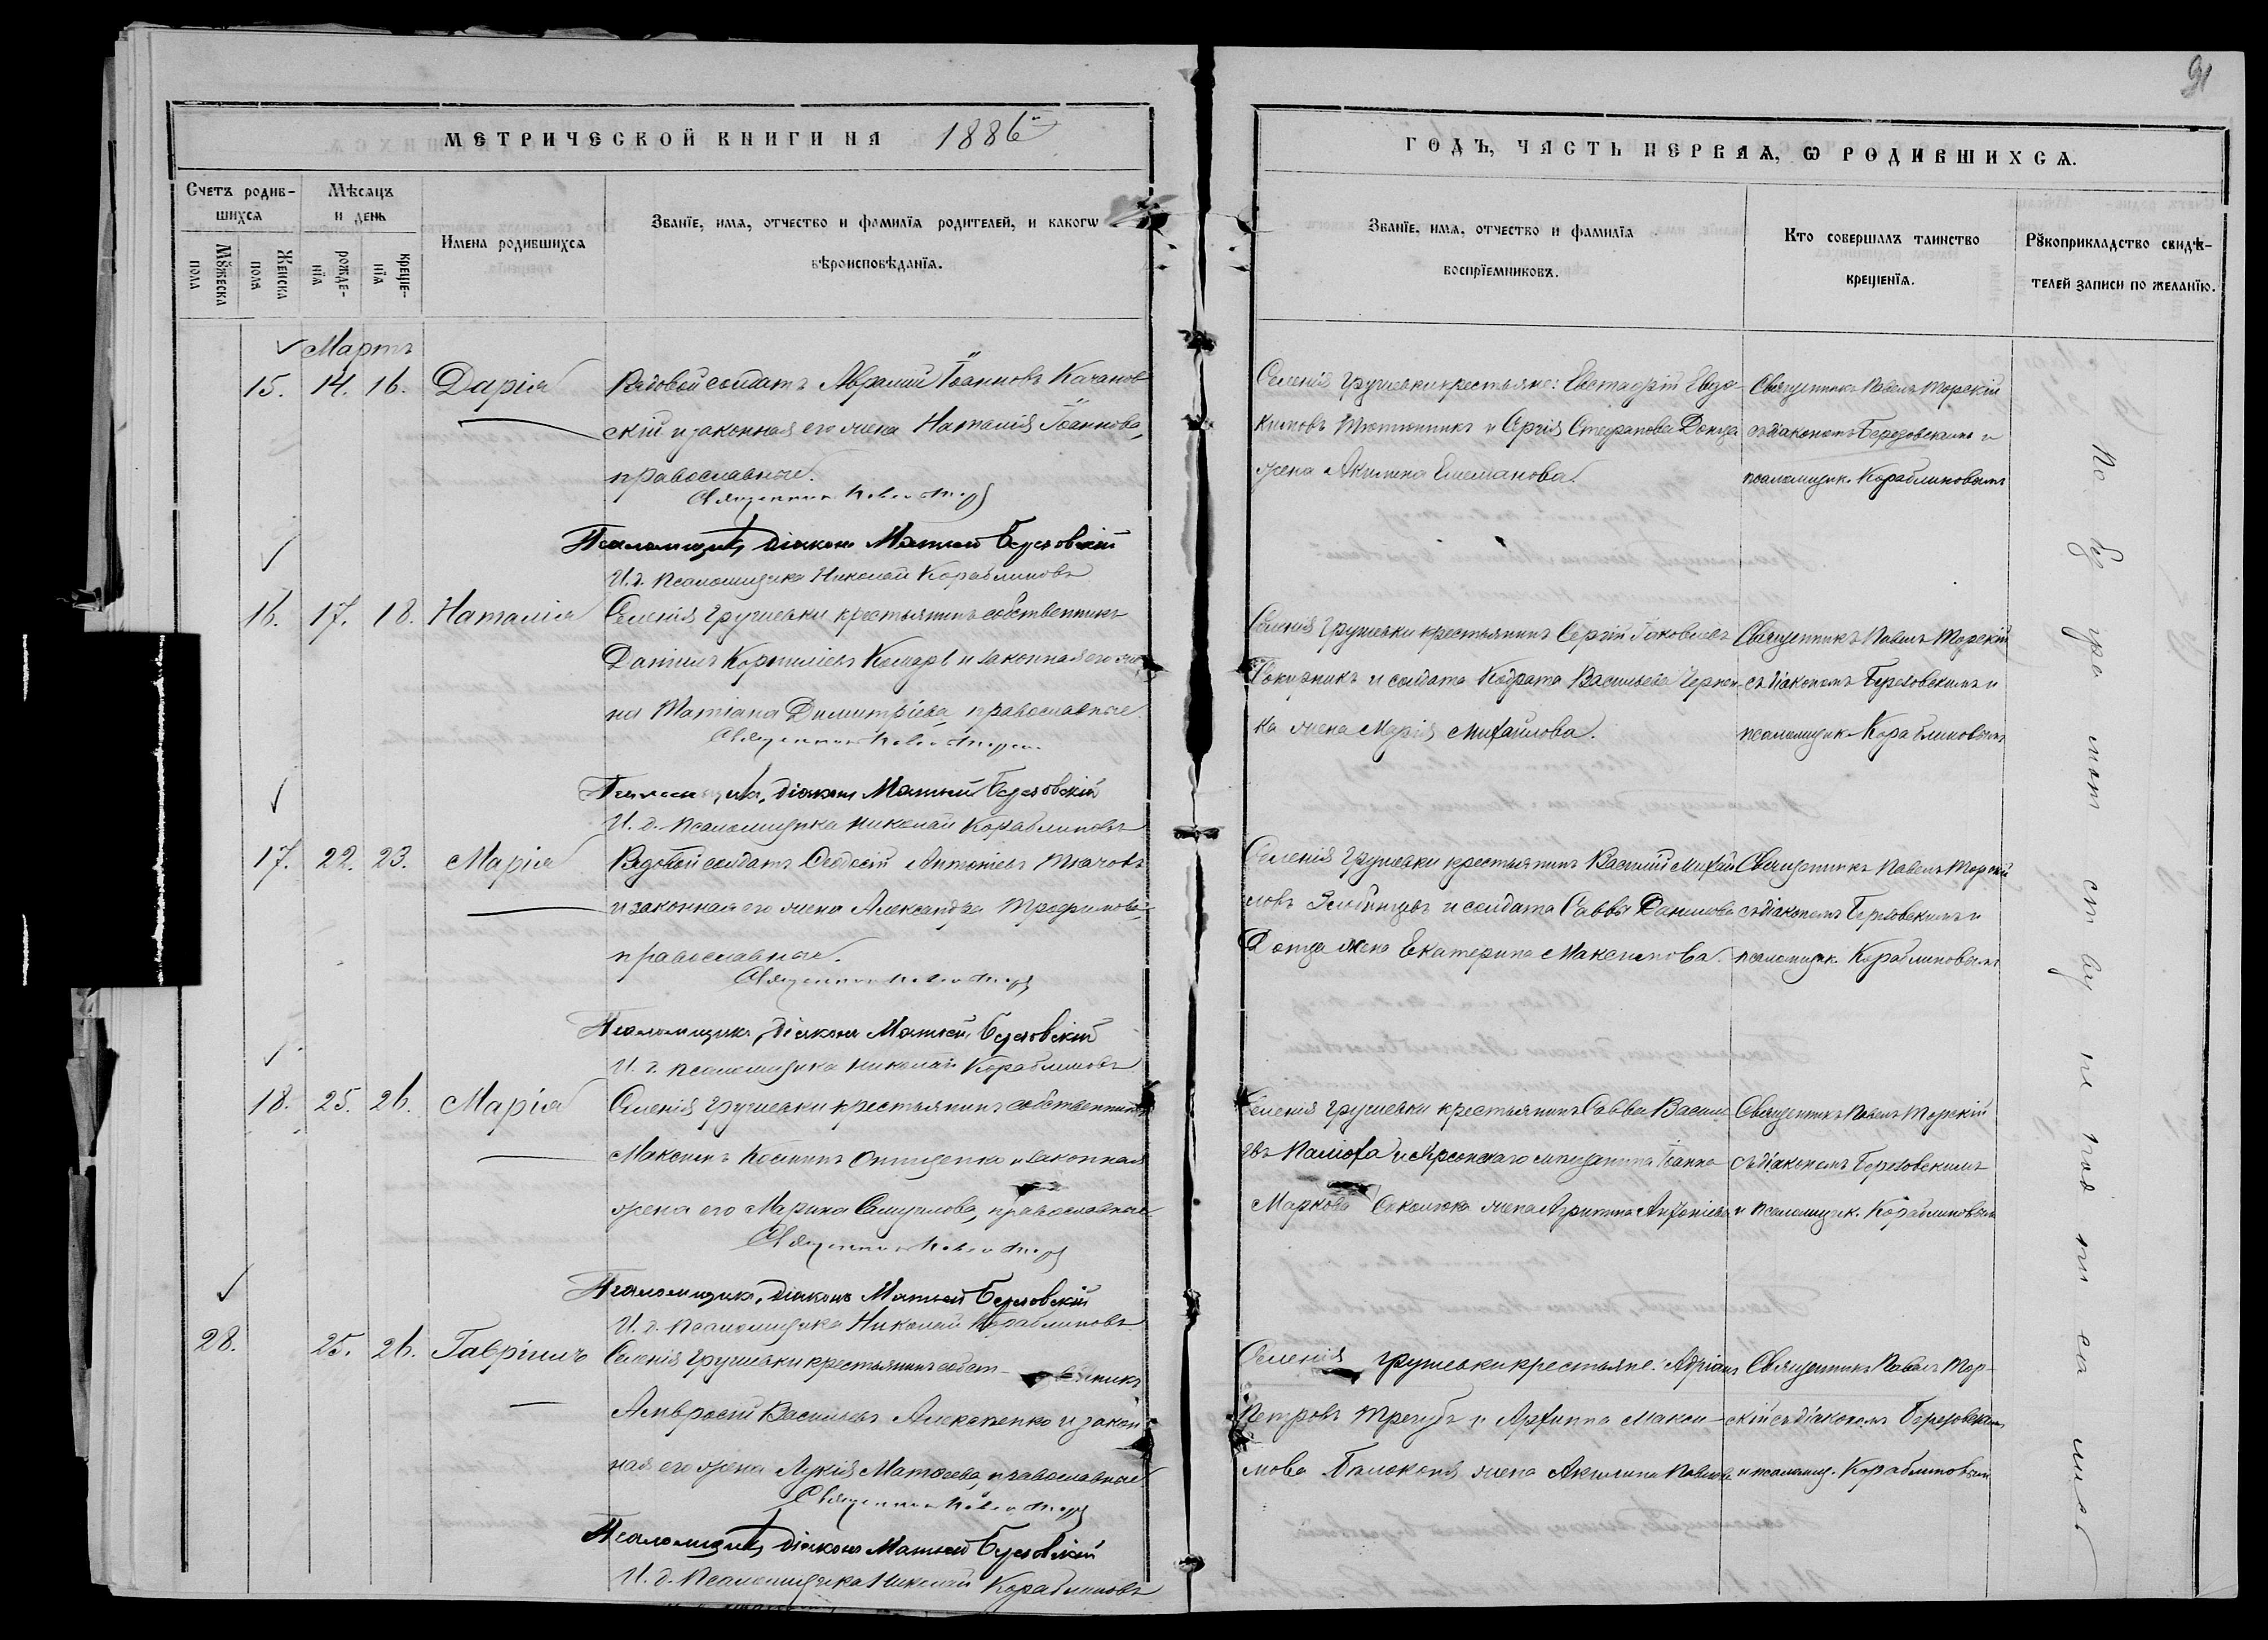 91
МЕТРИЧЕСКОЙ КНИГИ НА 1886й
ГОДЪ, ЧАСТЬ ПЕРВАЯ, Ѡ РОДИВШИХСѦ.
Счетъ родив-
шихсѧ
Мѣсѧцъ
и день
Мꙋжеска
пола
Женска
пола
рожде-
нїѧ
креще-
нїѧ
Имена родившихсѧ
Званїе, имѧ, отчество и фамилїѧ родителей, и какогѡ
вѣроисповѣданїѧ.
Званїе, имѧ, отчество и фамилїѧ
воспрїемниковъ.
Кто совершалъ таинство
крещенїѧ.
Рꙋкоприкладство свидѣ-
телей записи по желанїю.
Мартъ
15. 14. 16. Дарія
Рядовой солдатъ Аврамій Іоанновъ Качанов-
скій и законная его жена Наталія Іоаннова,
православные.
Священникъ Павелъ
Псаломщикъ, діаконъ Матвей Березовскій
И. д. псаломщика Николай Кораблиновъ
Селенія Грушевки крестьяне: Евстафій Евдо-
кимовъ Тютюнникъ и Сергія Стефанова Донца
жена Акилина Емелианова.
Священникъ Павелъ Торскій
съ діакономъ Березовскимъ и
псаломщик. Кораблиновымъ
16. 17. 18. Наталія
Селенія Грушевки крестьянинъ собственникъ
Даніилъ Корниліевъ Комаръ и законная его же-
на Татіана Димитріева, православные
Священникъ Павелъ
Псаломщикъ, діаконъ Матвей Березовскій
И. д. псаломщика Николай Кораблиновъ
Селенія Грушевки крестьянинъ Сергій Іаковлевъ
и солдата Кодрата Васильева
ка жена Марія Михайлова.
Священникъ Павелъ Торскій
съ діакономъ Березовскимъ и
псаломщик. Кораблиновымъ
17. 22. 23. Марія
Рядовой солдатъ Феодосій Антоніевъ Ткачовъ
и законная его жена Александра Трофимова,
православные.
Священникъ Павелъ
Псаломщикъ, діаконъ Матвей Березовскій
И. д. псаломщика Николай Кораблиновъ
Селенія Грушевки крестьянинъ Василій Михай-
ловъ и солдата Саввы Данилова
Донца жена Екатерина Максимова.
Священникъ Павелъ Торскій
съ діакономъ Березовскимъ и
псаломщик. Кораблиновымъ
18. 25. 26. Марія
Селенія Грушевки крестьянинъ собственникъ
Максимъ Косминъ Онищенко и законная
жена его Марина Самуилова, православные
Священникъ Павелъ
Псаломщикъ, діаконъ Матвей Березовскій
И. д. псаломщика Николай Кораблиновъ
Селенія Грушевки крестьянинъ Савва Василі-
евъ Паліоха и Херсонскаго мещанина Іоанна
Маркова Соколюка жена Агрипина Антоніева
Священникъ Павелъ Торскій
съ діакономъ Березовскимъ
и псаломщик. Кораблиновымъ
28. 25. 26. Гавріилъ
Селенія Грушевки крестьянинъ собст-венникъ
Амвросій Васильевъ Алексенко и закон-
ная его жена Лукія Матфеева, православные
Священникъ Павелъ
Псаломщикъ, діаконъ Матвей Березовскій
И. д. псаломщика Николай Кораблиновъ
Селенія Грушевки крестьяне: Адріанъ
Петровъ Трегубъ и Архиппа Макси-
мова Бѣлоконя жена Акилина Павлова
Священникъ Павелъ Тор-
скій съ діакономъ Березовскимъ
и псаломщ. Кораблиновымъ
По безграмотству не подписались